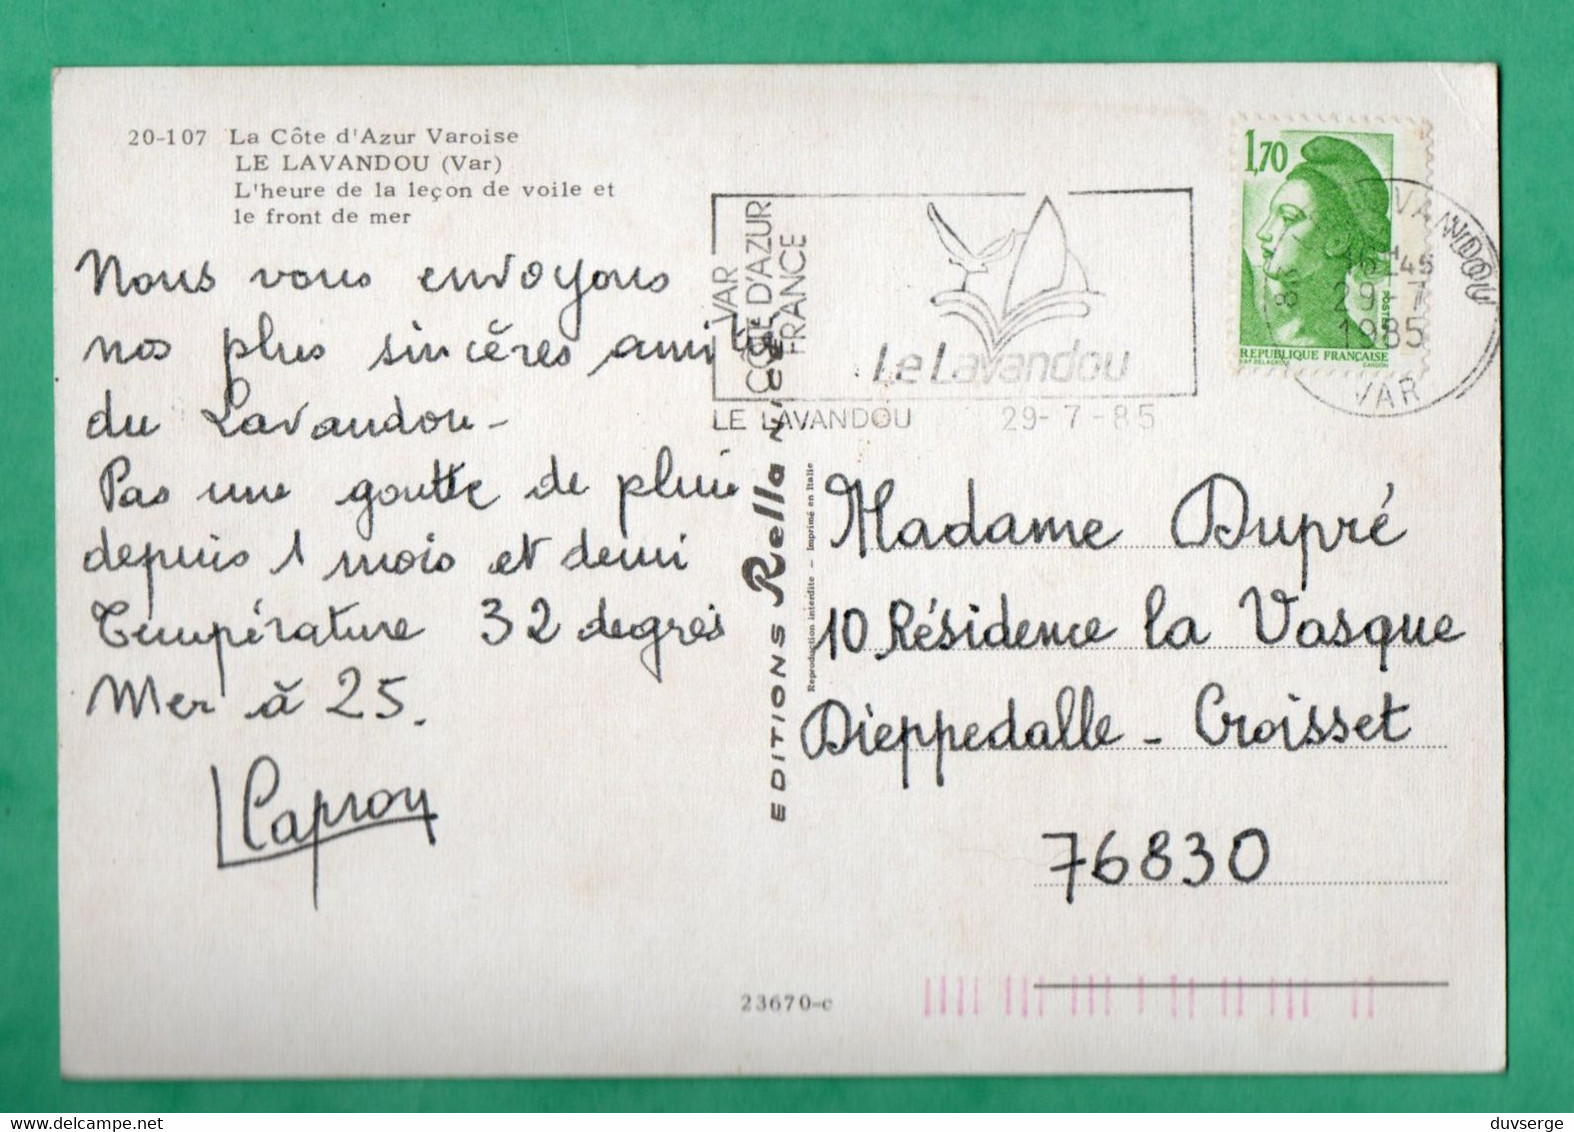 20-107 La Côte d'Azur Varoise
LE LAVANDOU (Var)
L'heure de la leçon de voile et
le front de mer
Nous vous envoyons
nos plus sincères
du Lavandou -
Pas une goutte de pluie
depuis 1 mois et demi
Température 32 degrés
Mer à 25.
Capron
VAR
CÔTE D'AZUR
FRANCE
Le Lavandou
LE LAVANDOU 29-7-85
1,70
POSTES
REPUBLIQUE FRANÇAISE
GANDON
LAVANDOU
16H45
29-7
1985
83
VAR
EDITIONS Rella NICE
Reproduction interdite - Imprimé en Italie
Madame Dupré
10 Résidence la Vasque
Dieppedalle - Croisset
76830
23670-c
duvserge